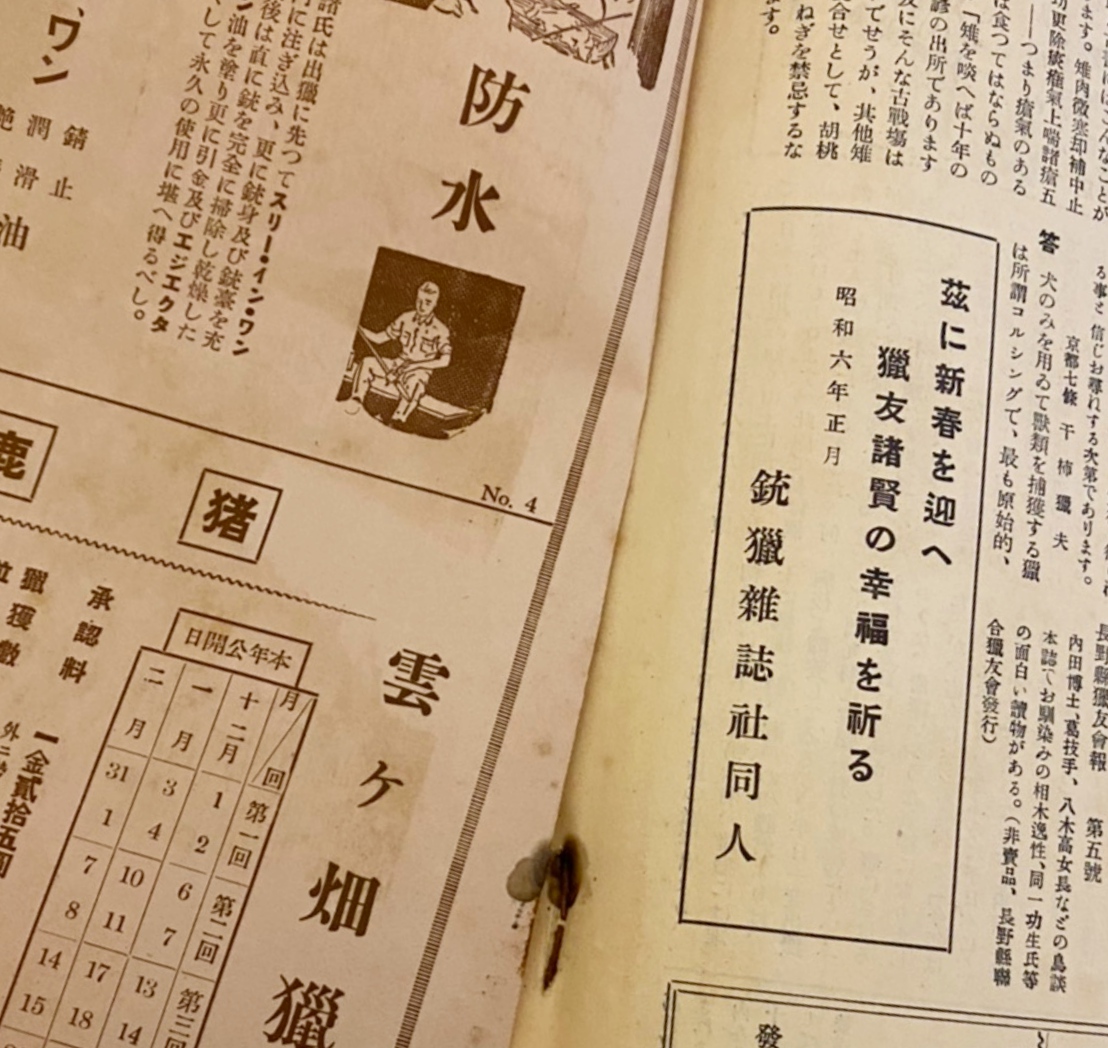 ます。雉肉微寒却補中止
氣上喘諸瘡五
――つまり瘡氣のある
は食つてはならぬもの
『雉を啖へば十年の
諺の出所であります
にそんな古戰場は
でせうが、其他雉
合せとして、胡桃
ねぎを禁忌するな
ます。
る事と信じお尋れする次第であります。
京都七條 干柿獵夫
答 犬のみを用ゐて獸類を捕獲する獵
は所謂コルシングで、最も原始的、
長野縣獵友會報 第五號
内田博士、葛技手、八木高女長などの鳥談
本誌でお馴染みの相木逸性、同一功生氏等
の面白い讀物がある。(非賣品、長野縣聯
合獵友會發行)
茲に新春を迎へ
獵友諸賢の幸福を祈る
昭和六年正月
銃獵雜誌社同人
發
防水
諸氏は出獵に先つてスリー・イン・ワン
に注ぎ込み、更に銃身及び銃臺を充
後は直に銃を完全に掃除し乾燥した
ン油を塗り更に引金及びエジエクタ
くして永久の使用に堪へ得るべし。
ワン
錆止
潤滑
油
No. 4
猪
鹿
雲ヶ畑獵
本年公開日
月/回 第一回 第二回 第三回
十二月 1 2 6 7 13 14
一月 3 4 10 11 17 18
二月 31 1 7 8 14 15
承認料
一金貳拾五圓
獵獲數